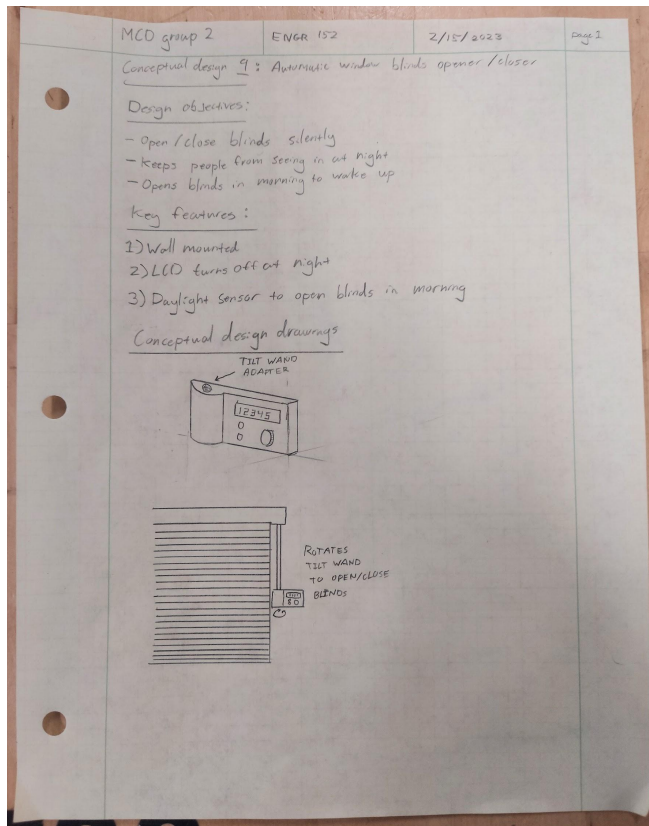 MCO group 2 ENGR 152 2/15/2023 page 1
Conceptual design 9: Automatic window blinds opener/closer
Design objectives:
- Open/close blinds silently
- Keeps people from seeing in at night
- Opens blinds in morning to wake up
Key features:
1) Wall mounted
2) LCD turns off at night
3) Daylight sensor to open blinds in morning
Conceptual design drawings
TILT WAND
ADAPTER
12345
ROTATES
TILT WAND
TO OPEN/CLOSE
BLINDS